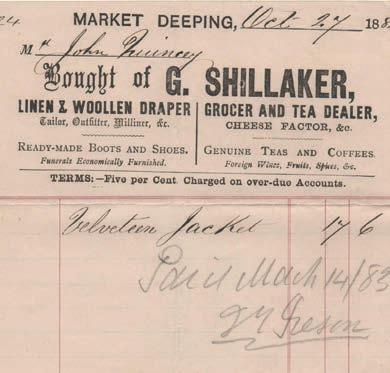 24
MARKET DEEPING, Oct 27 188
Mr John Quincey
Bought of G. SHILLAKER,
LINEN & WOOLLEN DRAPER
Tailor, Outfitter, Milliner, &c.
READY-MADE BOOTS AND SHOES.
Funerals Economically Furnished.
GROCER AND TEA DEALER,
CHEESE FACTOR, &c.
GENUINE TEAS AND COFFEES.
Foreign Wines, Fruits, Spices, &c.
TERMS:—Five per Cent. Charged on over-due Accounts.
Velveteen Jacket 17 6
Paid Mach 14/83